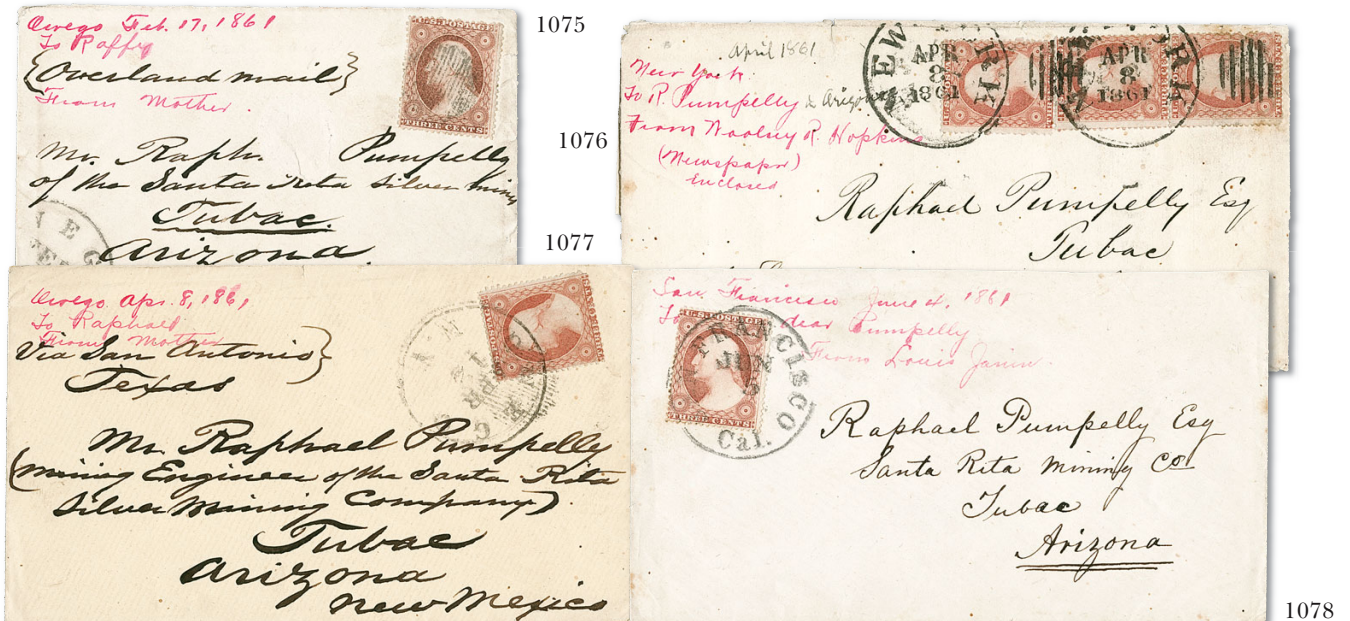 1075
Owego Feb. 17, 1861
To Raffy
{Overland mail}
From Mother.
U.S. POSTAGE
THREE CENTS
Mr. Raph. Pumpelly
of the Santa Rita Silver mining
Tubac.
Arizona.
1076
April 1861
New York
To R. Pumpelly
From Woolsey R. Hopkins
(Newspaper)
Enclosed
NEW YORK
APR
8
1861
NEW YORK
APR
8
1861
Raphael Pumpelly Esq
Tubac
1077
Owego. Apr. 8, 1861
To Raphael
From Mother
Via San Antonio}
Texas
Mr. Raphael Pumpelly
(Mining Engineer of the Santa Rita
Silver Mining Company)
Tubac
Arizona
New Mexico
San Francisco June 4, 1861
To dear Pumpelly
From Louis Janin.
U.S. POSTAGE
THREE CENTS
FRANCISCO
JUN
5
Cal.
Raphael Pumpelly Esq
Santa Rita Mining Co
Tubac
Arizona
1078